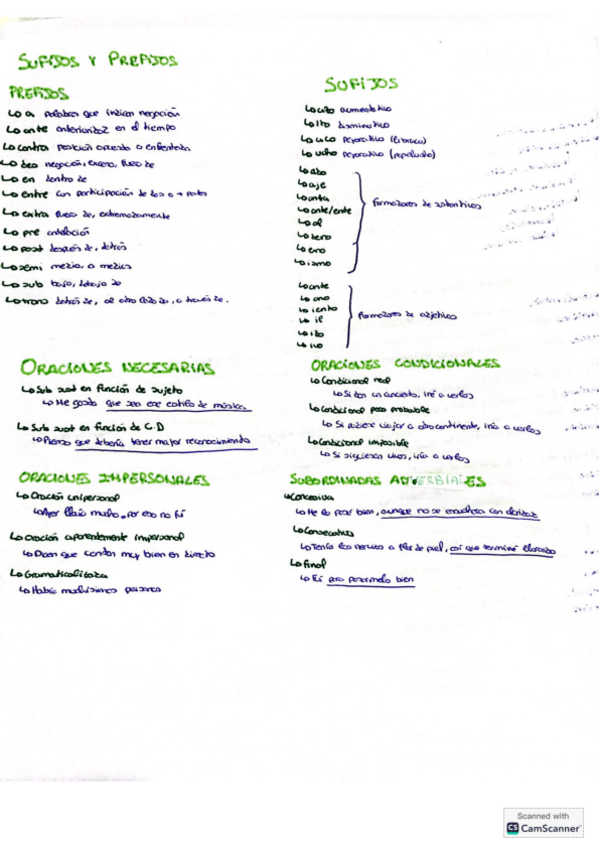 SUFIJOS Y PREFIJOS
PREFIJOS
↳ a palabras que indican negación
↳ ante anterioridad en el tiempo
↳ contra posición opuesta o enfrentada
↳ des negación, exceso, fuera de
↳ en dentro de
↳ entre con participación de dos o + partes
↳ extra fuera de, extremadamente
↳ pre antelación
↳ post después de, detrás
↳ semi medio, o medias
↳ sub bajo, debajo de
↳ trans detrás de, al otro lado de, a través de.
SUFIJOS
↳ aumentativo
↳ ito diminutivo
↳ uco peyorativo
↳ ucho peyorativo
↳ aje
↳ ante/ente
↳ al
↳ ero
↳ ismo
formadores de sustantivos
↳ ante
↳ ano
↳ iento
↳ il
↳ ivo
formadores de adjetivos
ORACIONES NECESARIAS
↳ Sub sust en función de sujeto
↳ Me gusta que sea ese estilo de música
↳ Sub sust en función de C.D
↳ Pienso que debería tener mayor reconocimiento
ORACIONES IMPERSONALES
↳ Oración unipersonal
↳ Ayer llovió mucho, por eso no fui
↳ Oración aparentemente impersonal
↳ Dicen que cantan muy bien en directo
↳ Gramaticalizada
↳ Había muchísimas personas
ORACIONES CONDICIONALES
↳ Condicional real
↳ Si dan un concierto, iré a verlos
↳ Condicional poco probable
↳ Si pudiese viajar a otro continente, iría a verlos
↳ Condicional imposible
↳ Si siguiesen vivos, iría a verlos
SUBORDINADAS ADVERBIALES
↳ Concesiva
↳ Me lo pasé bien, aunque no se escuchaba con claridad
↳ Consecutiva
↳ Tenía los nervios a flor de piel, así que terminé llorando
↳ Final
↳ Fui para pasármelo bien
Scanned with
CS CamScanner